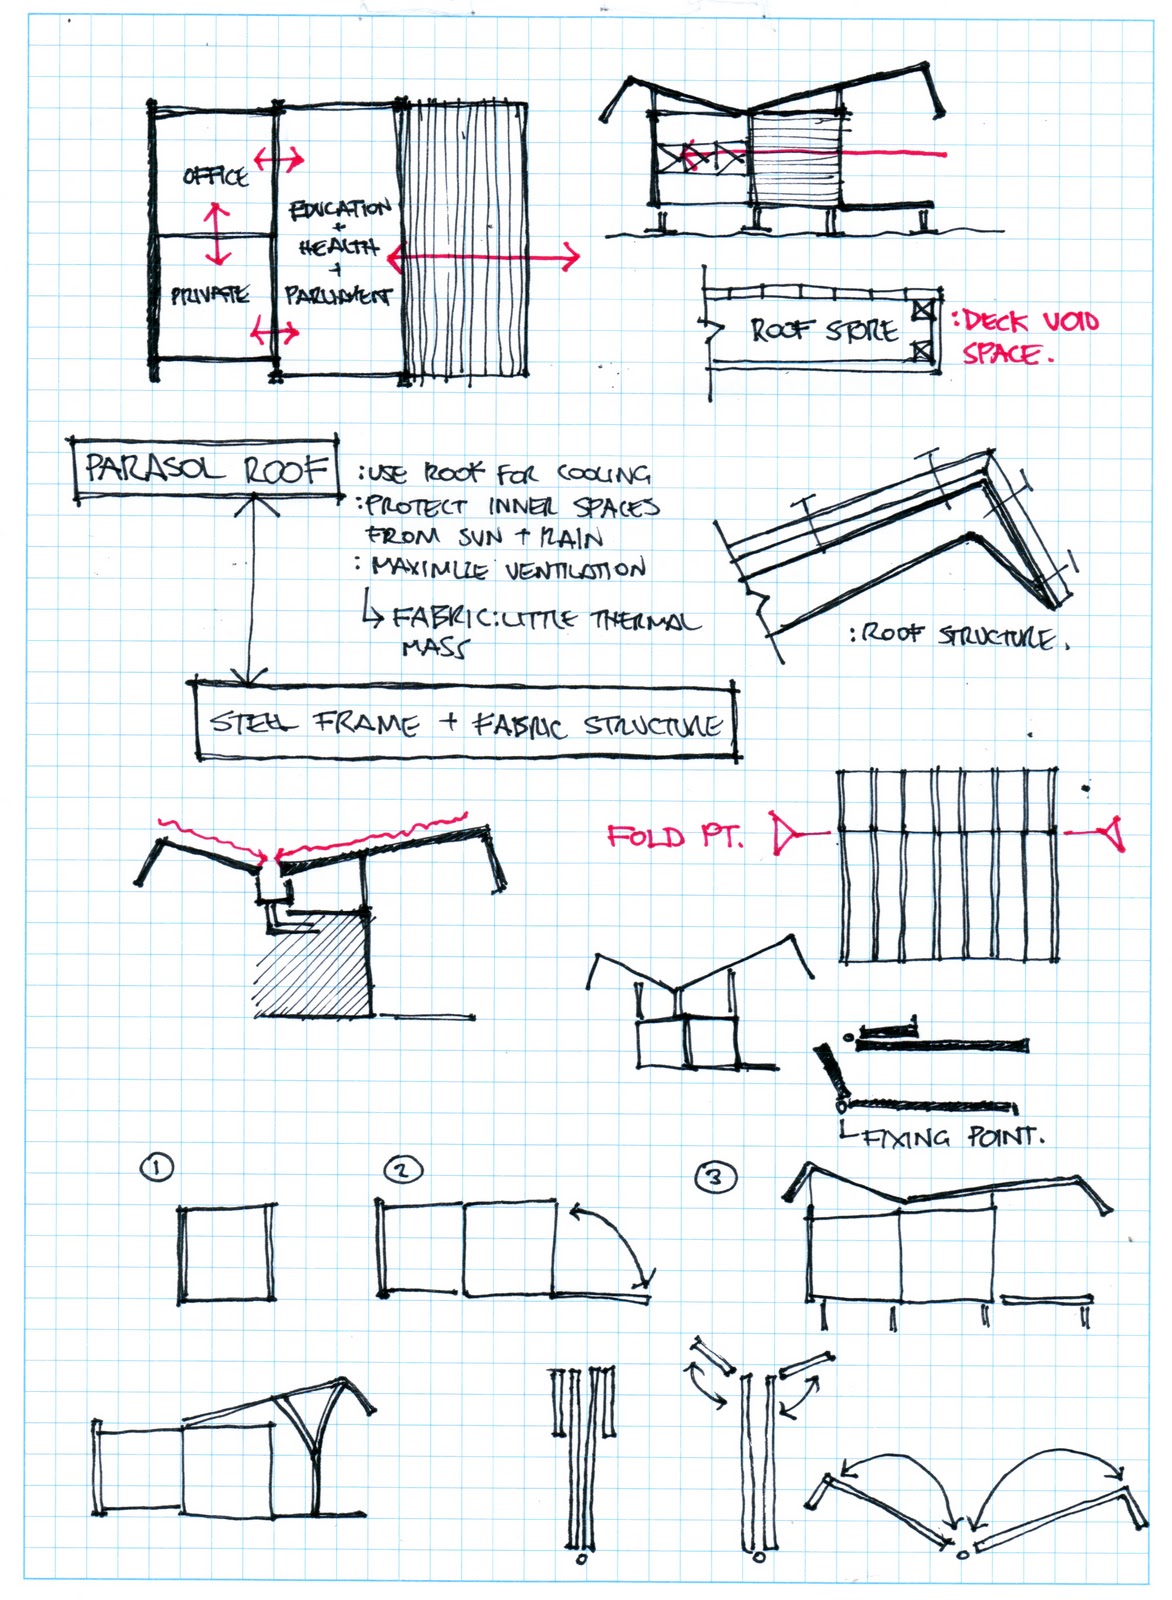 OFFICE
PRIVATE
EDUCATION
+
HEALTH
+
PARLIAMENT
ROOF STORE
:DECK VOID
SPACE.
PARASOL ROOF
:USE ROOF FOR COOLING
:PROTECT INNER SPACES
FROM SUN + RAIN
:MAXIMIZE VENTILATION
↳ FABRIC:LITTLE THERMAL
MASS
:ROOF STRUCTURE.
STEEL FRAME + FABRIC STRUCTURE
FOLD PT.
FIXING POINT.
1
2
3